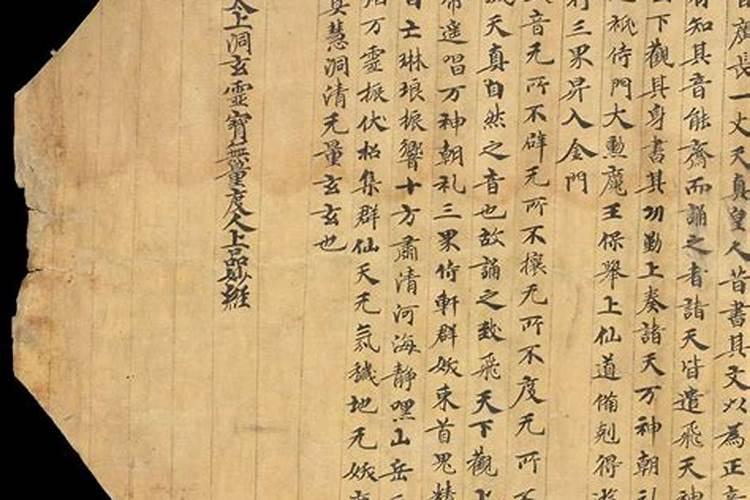 廣長一丈天真皇人昔書其文以為正音
有知其音能齋而誦之者諸天皆遣飛天神
下觀其身書其功勤上奏諸天万神朝礼
祇侍門大勳魔王保舉上仙道備剋得遊
行三界昇入金門
音无所不辟无所不攘无所不度无所不
成天真自然之音也故誦之致飛天下觀上
帝遥唱万神朝礼三界侍軒群妖束首鬼精
自亡琳琅振響十方肅清河海靜嘿山岳
万靈振伏招集群仙天无氛穢地无妖
慧洞清无量玄玄也
上洞玄靈寶無量度人上品妙經